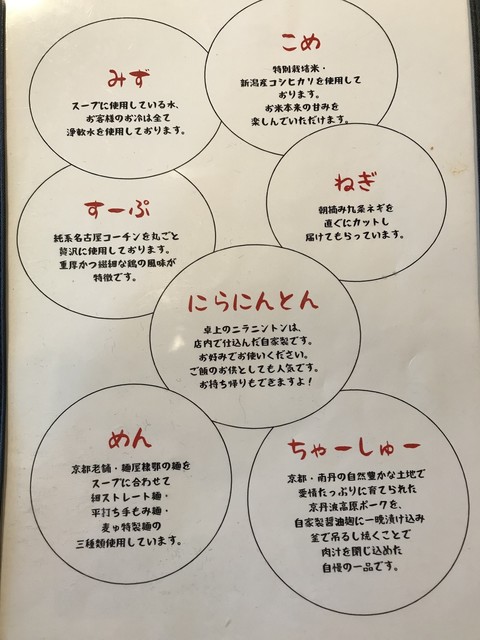 みず
スープに使用している水、
お客様のお冷は全て
浄軟水を使用しております。
こめ
特別栽培米・
新潟産コシヒカリを使用して
おります。
お米本来の甘みを
楽しんでいただけます。
すーぷ
純系名古屋コーチンを丸ごと
贅沢に使用しております。
重厚かつ繊細な鶏の風味が
特徴です。
ねぎ
朝摘み九条ネギを
直ぐにカットし
届けてもらっています。
にらにんとん
卓上のニラニントンは、
店内で仕込んだ自家製です。
お好みでお使いください。
ご飯のお供としても人気です。
お持ち帰りもできますよ!
めん
京都老舗・麺屋棣鄂の麺を
スープに合わせて
細ストレート麺・
平打ち手もみ麺・
麦ゅ特製麺の
三種類使用しています。
ちゃーしゅー
京都・南丹の自然豊かな土地で
愛情たっぷりに育てられた
京丹波高原ポークを、
自家製醤油麹に一晩漬け込み
釜で吊るし焼くことで
肉汁を閉じ込めた
自慢の一品です。